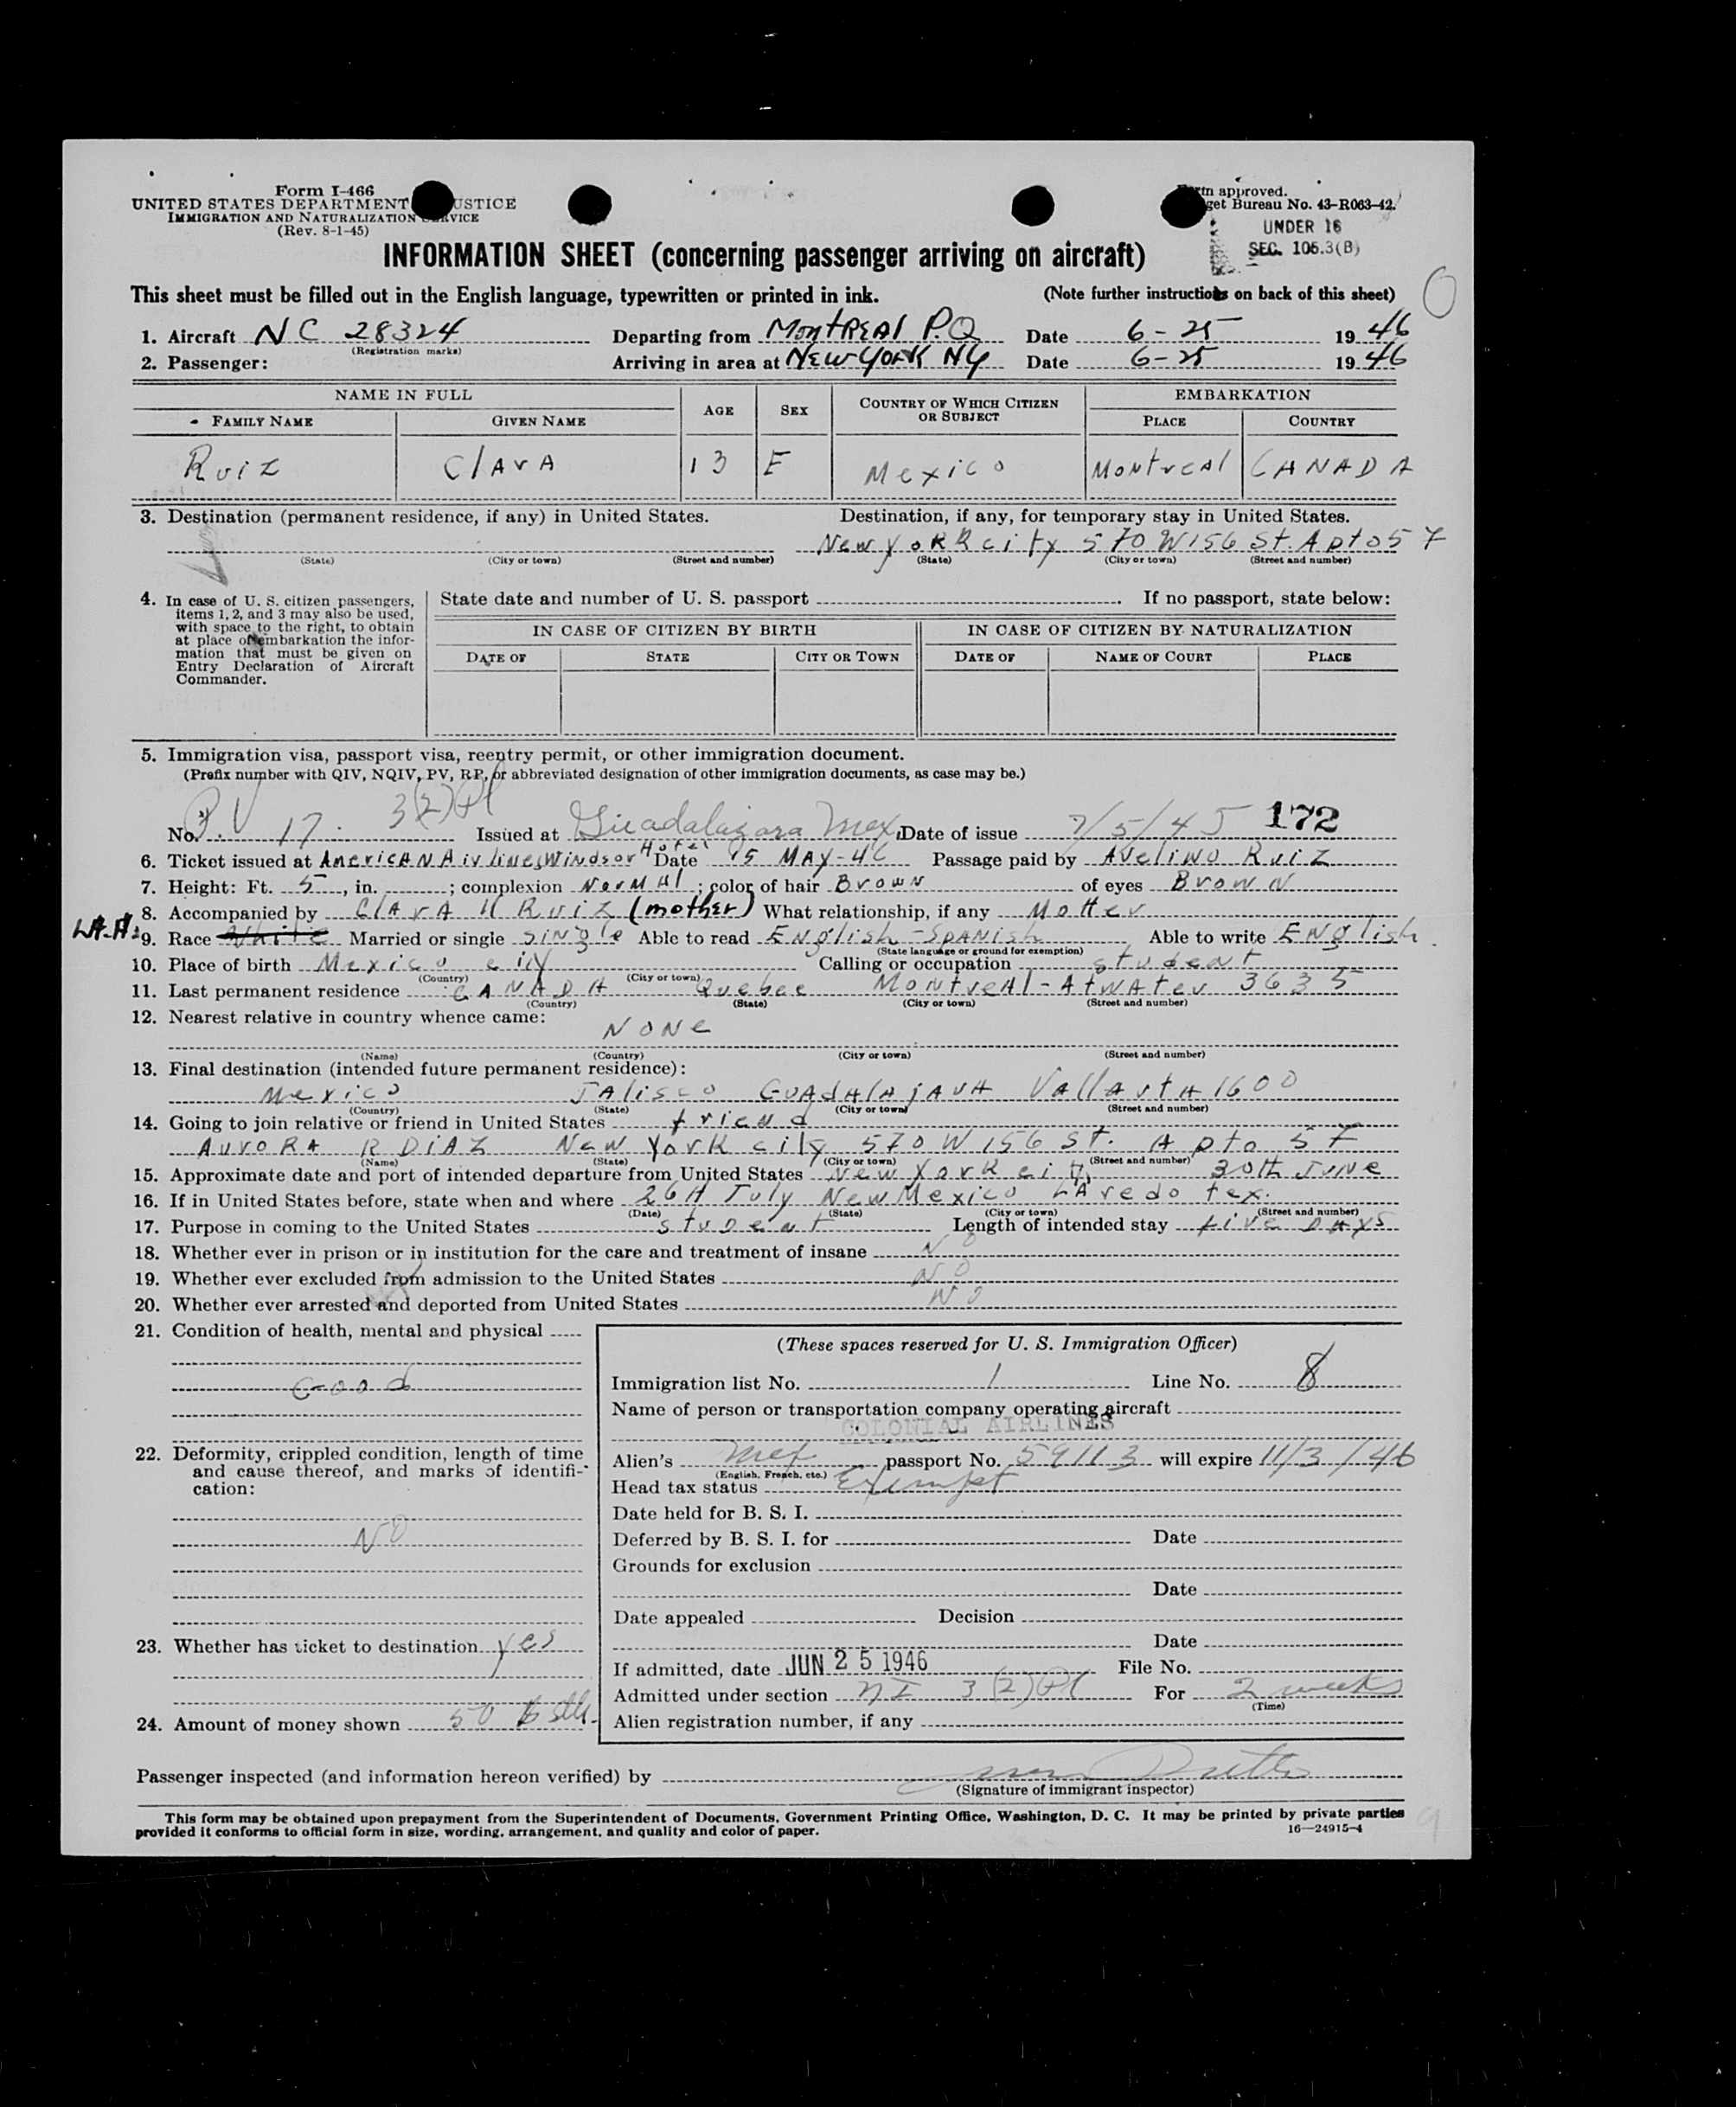 Form I-466
UNITED STATES DEPARTMENT USTICE
IMMIGRATION AND NATURALIZATION RVICE
(Rev. 8-1-45)
approved.
get Bureau No. 43-R063-42.
UNDER 16
SEC. 105.3(B)
INFORMATION SHEET (concerning passenger arriving on aircraft)
This sheet must be filled out in the English language, typewritten or printed in ink. (Note further instructions on back of this sheet)
1. Aircraft NC 28324 Departing from MontREAl P.Q Date 6-25 1946
(Registration marks)
2. Passenger: Arriving in area at NEW YORK NY Date 6-25 1946
NAME IN FULL AGE SEX COUNTRY OF WHICH CITIZEN OR SUBJECT EMBARKATION
FAMILY NAME GIVEN NAME PLACE COUNTRY
Ruiz ClArA 13 F Mexico MontreAl CANADA
3. Destination (permanent residence, if any) in United States. Destination, if any, for temporary stay in United States.
New yoRk city 570 W156 St. Apto 57
(State) (City or town) (Street and number) (State) (City or town) (Street and number)
4. In case of U. S. citizen passengers, items 1, 2, and 3 may also be used, with space to the right, to obtain at place of embarkation the information that must be given on Entry Declaration of Aircraft Commander.
State date and number of U. S. passport If no passport, state below:
IN CASE OF CITIZEN BY BIRTH IN CASE OF CITIZEN BY NATURALIZATION
DATE OF STATE CITY OR TOWN DATE OF NAME OF COURT PLACE
5. Immigration visa, passport visa, reentry permit, or other immigration document.
(Prefix number with QIV, NQIV, PV, RP, or abbreviated designation of other immigration documents, as case may be.)
No. P.V 17. 3(2) Issued at Guadalajara Mex. Date of issue 7/5/45 172
6. Ticket issued at AmericAN Air lines Windsor Hotel Date 15 MAY-46 Passage paid by AVeliNo Ruiz
7. Height: Ft. 5, in. ; complexion NorMAl; color of hair BrowN of eyes BrowN
8. Accompanied by ClArA Ruiz (mother) What relationship, if any Motter
9. Race White Married or single siNgle Able to read ENglish-SpANish Able to write ENglish
(State language or ground for exemption)
10. Place of birth Mexico city Calling or occupation student
(Country) (City or town)
11. Last permanent residence CANADA Quebec MontreAl-AtwAter 3635
(Country) (State) (City or town) (Street and number)
12. Nearest relative in country whence came: NONe
(Name) (Country) (City or town) (Street and number)
13. Final destination (intended future permanent residence):
Mexico JAlisco GuAdAlAjArA VAllArtA 1600
(Country) (State) (City or town) (Street and number)
14. Going to join relative or friend in United States friend
AuroRA R DiAZ New York city 570 W 156 St. Apto 57
(Name) (State) (City or town) (Street and number)
15. Approximate date and port of intended departure from United States New York city 30th JuNe
16. If in United States before, state when and where July New Mexico LAredo tex.
(Date) (State) (City or town) (Street and number)
17. Purpose in coming to the United States student Length of intended stay five DAys
18. Whether ever in prison or in institution for the care and treatment of insane No
19. Whether ever excluded from admission to the United States No
20. Whether ever arrested and deported from United States No
21. Condition of health, mental and physical
Good
22. Deformity, crippled condition, length of time and cause thereof, and marks of identification:
NO
23. Whether has ticket to destination yes
24. Amount of money shown 50
(These spaces reserved for U. S. Immigration Officer)
Immigration list No. 1 Line No. 8
Name of person or transportation company operating aircraft
COLONIAL AIRLINES
Alien's Mex passport No. 59113 will expire 11/3/46
(English, French, etc.)
Head tax status Exempt
Date held for B. S. I.
Deferred by B. S. I. for Date
Grounds for exclusion
Date
Date appealed Decision
Date
If admitted, date JUN 25 1946 File No.
Admitted under section 3(2) For 2 weeks
(Time)
Alien registration number, if any
Passenger inspected (and information hereon verified) by
(Signature of immigrant inspector)
This form may be obtained upon prepayment from the Superintendent of Documents, Government Printing Office, Washington, D. C. It may be printed by private parties
provided it conforms to official form in size, wording, arrangement, and quality and color of paper. 16—24915-4